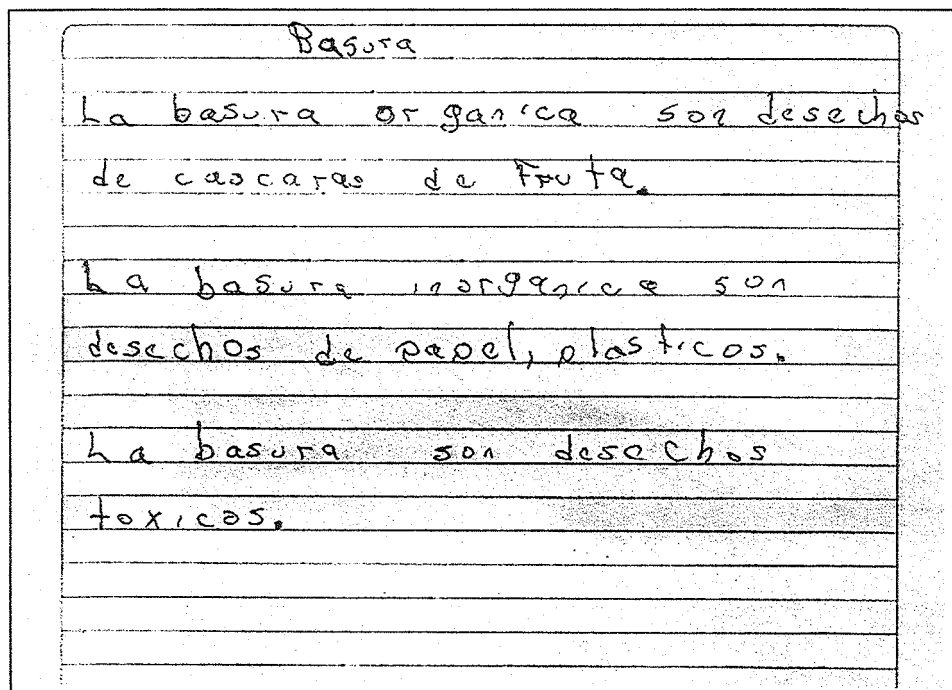 Basura
La basura organica son desechos
de cascaras de Fruta.
La basura inorganica son
desechos de papel, plasticos.
La basura son desechos
toxicos.